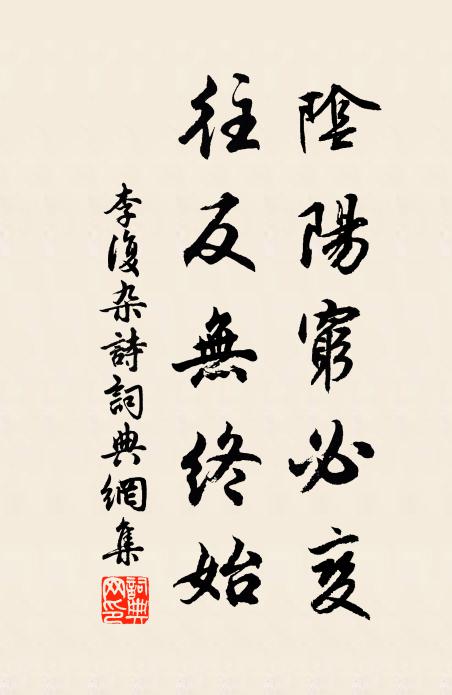 陰陽窮必變
往反無終始
李復杂詩詞典網集
詞典網印